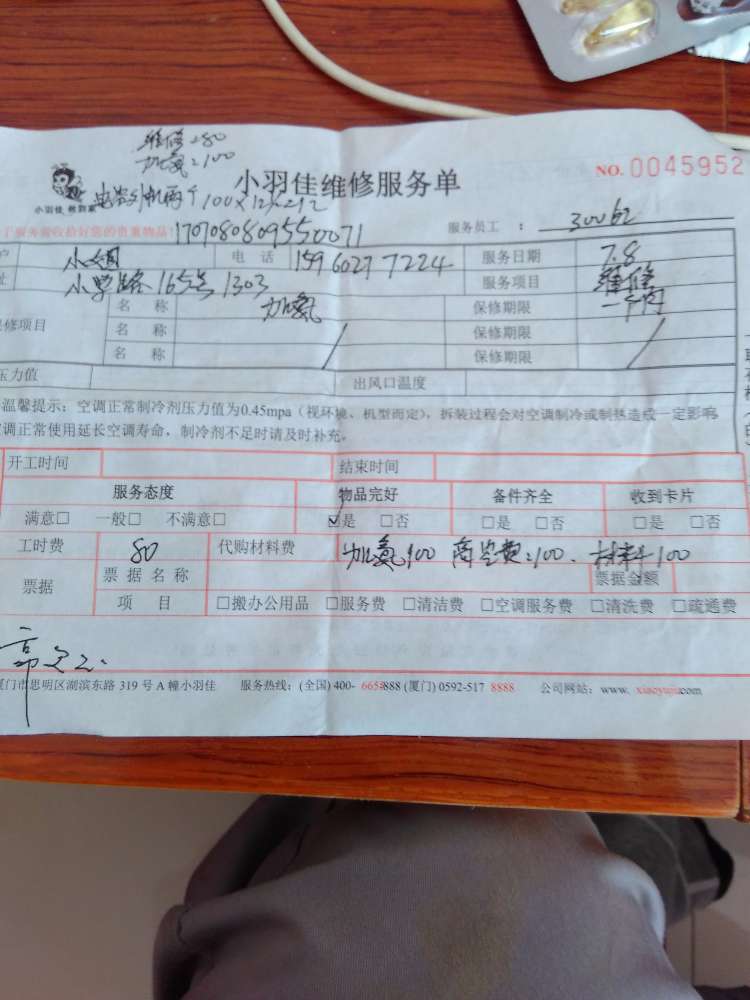 维修:80
加氟:100
小羽佳维修服务单
NO. 0045952
小羽佳 救到家
服务员工 : 30062
服务前请收拾好您的贵重物品!
1707080809550071
电话 15960277224
服务日期 7.8
小学路165号1303
服务项目 维修
保修项目
名称 加氟
保修期限 一个月
名称 /
保修期限 /
名称
保修期限
压力值
出风口温度
温馨提示:空调正常制冷剂压力值为0.45mpa(视环境、机型而定),拆装过程会对空调制冷或制热造成一定影响
调正常使用延长空调寿命,制冷剂不足时请及时补充。
开工时间
结束时间
服务态度
物品完好
备件齐全
收到卡片
满意□ 一般□ 不满意□
☑是 □否
□是 □否
□是 □否
工时费 80
代购材料费 加氟100 高空费:100. 材料100
票据
票据名称
票据金额
项目
□搬办公用品 □服务费 □清洁费 □空调服务费 □清洗费 □疏通费
厦门市思明区湖滨东路 319 号 A 幢小羽佳
服务热线:(全国) 400- 888 (厦门) 0592-517 8888
公司网站:www. xiaoyujia.com